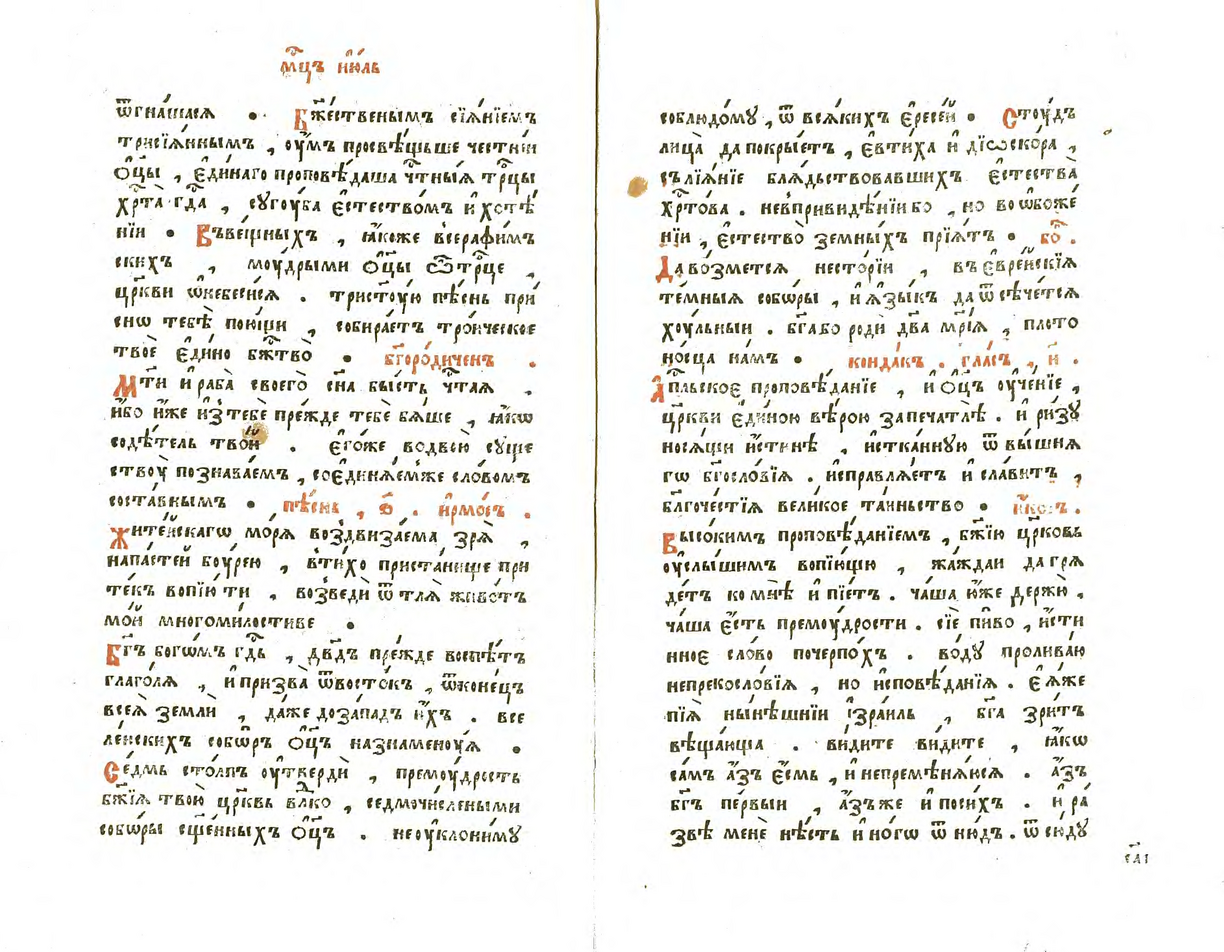 мц҃ъ їю́ль
ѿгна́шася • Бж҃е́ственымъ сїѧ́нїемъ
трисїѧ́ннымъ , оу́мъ просвѣ́щьше че́стнїи
ѻ҆ц҃ы , є҆ди́наго проповѣ́даша чт҃ныѧ трⷪ҇цы
хрⷭ҇та̀ гдⷭ҇а , сꙋгоу́ба є҆стество́мъ и҆ хотѣ́
нїи • Въвещныхъ , ꙗ҆́коже въсерафи́мъ
скихъ , моу́дрыми ѻ҆ц҃ы ѽтрⷪ҇це ,
цр҃кви ѡ҆небеси́сѧ . тристоу́ю пѣ́снь при́
сиѡ тебѣ̀ пою́щи , собира́етъ трои́ческое
твоѐ є҆ди́но бжⷭ҇тво̀ • бг҃оро́диченъ .
Мт҃и и҆ раба̀ своегѡ̀ сн҃а бы́сть чт҃аѧ ,
и҆́бо и҆́же и҆з̾ тебѐ пре́жде тебѐ бѧ́ше , ꙗ҆́кѡ
содѣ́тель тво́й . є҆го́же водвою̀ сꙋще
ствоу̀ познава́емъ , соединѧ́емже сло́вомъ
соста́внымъ • пѣ́снь , ѕ҃ . и҆рмо́съ .
Жите́йскагѡ мо́рѧ воздвиза́ема зрѧ̀ ,
напа́стей бо́урею , вти́хо приста́нище при
те́къ вопїю́ ти , возведѝ ѿ тлѧ̀ живо́тъ
мо́й многоми́лостиве •
Бг҃ъ бого́мъ гдⷭ҇ь , дв҃дъ пре́жде воспѣ́тъ
глаго́лѧ , и҆ призва̀ ѿвосто́къ , ѿконе́цъ
всеѧ̀ землѝ , да́же доза́падъ и҆́хъ . все
ле́нскихъ собѡ́ръ ѻ҆ц҃ъ назна́меноуѧ •
Се́дмь сто́лпъ оу҆твердѝ , премоу́дрость
бж҃їѧ твою̀ цр҃квь влⷣко , седмочи́слеными
собѡ́ры сщ҃е́нныхъ ѻ҆ц҃ъ . неоукло́нимꙋ
соблюдо́мꙋ , ѿ всѧ́кихъ є҆ресе́й • Стоу́дъ
лица̀ да покры́етъ , є҆вти́ха и҆ дїѡ́скора ,
сълїѧ́нїе блѧ́дьствовавшихъ є҆стества̀
хрⷭ҇то́ва . невпривидѣ́нїи бо , но во ѡ҆боже
нїи , є҆стество̀ зе́мныхъ прїѧ́тъ • бо҃ .
Да во́зметсѧ несторїи , въ є҆вре́йскїѧ
те́мныѧ собѡ́ры , и҆ ѧ҆зы́къ да ѿсѣче́тсѧ
хоу́льныи . бг҃а бо родѝ дв҃а мр҃і́ѧ , плото
но́сца на́мъ • конда́къ . гла́съ , и҃ .
Ап҃льское проповѣ́данїе , и҆ ѻ҆ц҃ъ оуче́нїе ,
цр҃кви є҆ди́ною вѣ́рою запечатлѣ̀ . и҆ ри́зꙋ
носѧ́щи и҆́стинѣ , и҆стка́ннꙋю ѿ вы́шнѧ
гѡ бг҃осло́вїѧ . исправлѧ́етъ и҆ сла́витъ ,
бл҃гоче́стїѧ вели́кое та́иньство • и҆́косъ .
Высо́кимъ проповѣ́данїемъ , бж҃їю цр҃ковь
оуслы́шимъ вопїю́щю , жа́ждаи да грѧ
де́тъ ко мнѣ̀ и҆ пїе́тъ . ча́ша ю҆́же держю̀ ,
ча́ша є҆́сть премоу́дрости . сїѐ пи́во , и҆́сти
нное сло́во почерпо́хъ . во́дꙋ пролива́ю
непрекосло́вїѧ , но и҆сповѣ́данїѧ . є҆ѧ́же
пїѧ̀ ны́нѣшнїи і҆зра́иль , бг҃а зри́тъ
вѣща́юща . ви́дите ви́дите , ꙗ҆́кѡ
са́мъ а҆́зъ є҆́смь , и҆ непремѣнѧ́юсѧ . а҆́зъ
бг҃ъ пе́рвыи , а҆́зъ же и҆ поси́хъ . и҆ ра
звѣ̀ менѐ нѣ́сть и҆но́гѡ ѿню́дъ . ѿсю́дꙋ